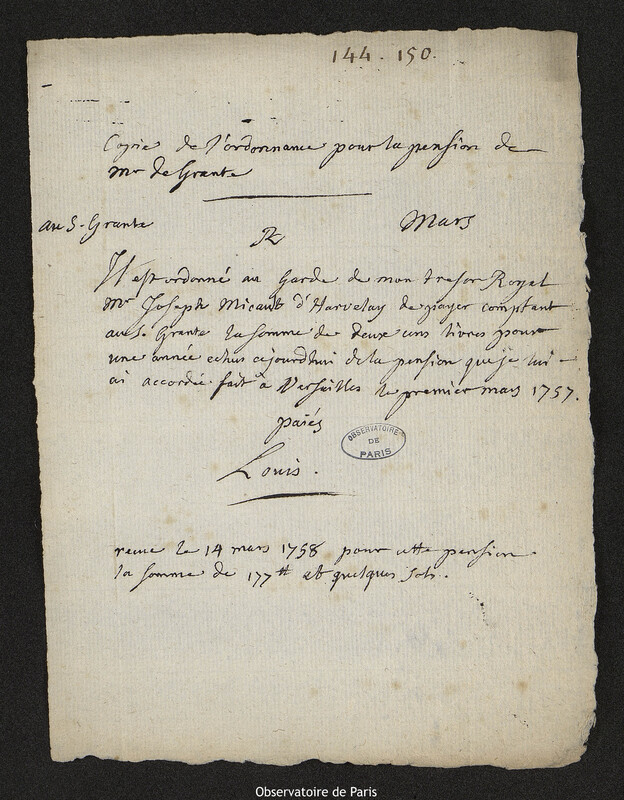 144. 150.
Copie de l'ordonnance pour la pension de
Mr de Grante
au S. Grante
Mars
Il est ordonné au Garde de mon tresor Royal
Mr Joseph Micault d'Harvelay de payer comptant
au S. Grante la somme de deux cens livres pour
une année echue ajourdhui de la pension que je lui
ai accordée fait à Versailles le premier mars 1757.
paiés
Louis.
OBSERVATOIRE
DE
PARIS
recue le 14 mars 1758 pour cette pension
la somme de 177tt et quelques sols.
Observatoire de Paris